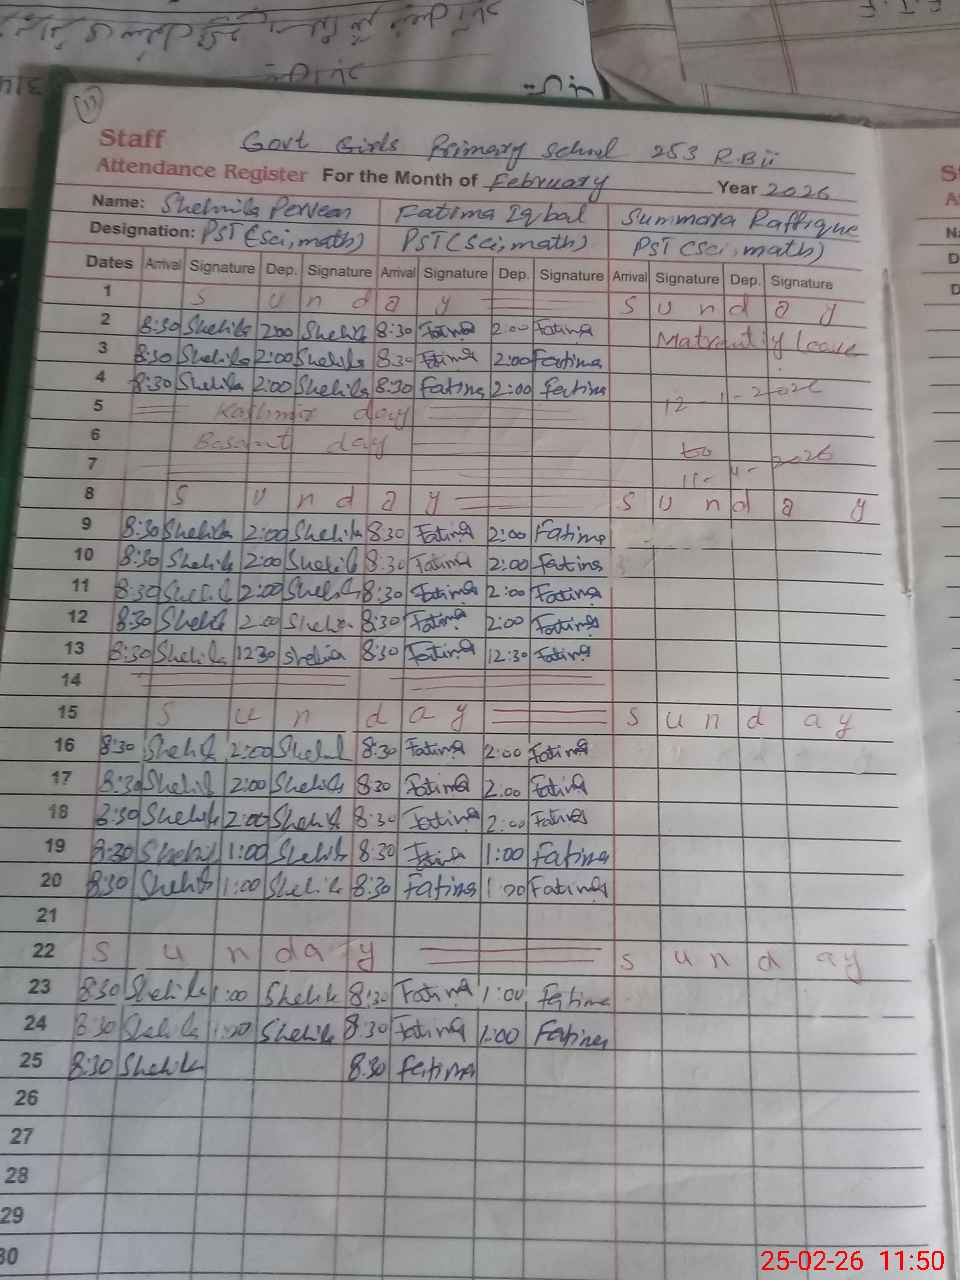 11
Staff Govt Girls Primary School 253 R.B ii
Attendance Register For the Month of February Year 2026
Name: Shehnila Perveen Fatima Iqbal Summara Raffique
Designation: PST (Sci, math) PST (Sci, math) PST (Sci, math)
Dates Arrival Signature Dep. Signature Arrival Signature Dep. Signature Arrival Signature Dep. Signature
1 S u n d a y S u n d a y
2 8:30 Shehila 2:00 Shehila 8:30 Fatima 2:00 Fatima leave
3 8:30 Shehila 2:00 Shehila 8:30 Fatima 2:00 Fatima
4 8:30 Shehila 2:00 Shehila 8:30 Fatima 2:00 Fatima 12-1-2026
5 Kashmir day
6 Basant day to
7 2026
8 S u n d a y S u n d a y
9 8:30 Shehila 2:00 Shehila 8:30 Fatima 2:00 Fatima
10 8:30 Shehila 2:00 Shehila 8:30 Fatima 2:00 Fatima
11 8:30 Shehila 2:00 Shehila 8:30 Fatima 2:00 Fatima
12 8:30 Shehila 2:00 Shehila 8:30 Fatima 2:00 Fatima
13 8:30 Shehila 12:30 Shehila 8:30 Fatima 12:30 Fatima
14
15 S u n d a y S u n d a y
16 8:30 Shehila 2:00 Shehila 8:30 Fatima 2:00 Fatima
17 8:30 Shehila 2:00 Shehila 8:30 Fatima 2:00 Fatima
18 8:30 Shehila 2:00 Shehila 8:30 Fatima 2:00 Fatima
19 8:30 Shehila 1:00 Shehila 8:30 Fatima 1:00 Fatima
20 8:30 Shehila 1:00 Shehila 8:30 Fatima 1:00 Fatima
21
22 S u n d a y S u n d a y
23 8:30 Shehila 1:00 Shehila 8:30 Fatima 1:00 Fatima
24 8:30 Shehila 1:00 Shehila 8:30 Fatima 1:00 Fatima
25 8:30 Shehila 8:30 Fatima
26
27
28
29
30
25-02-26 11:50